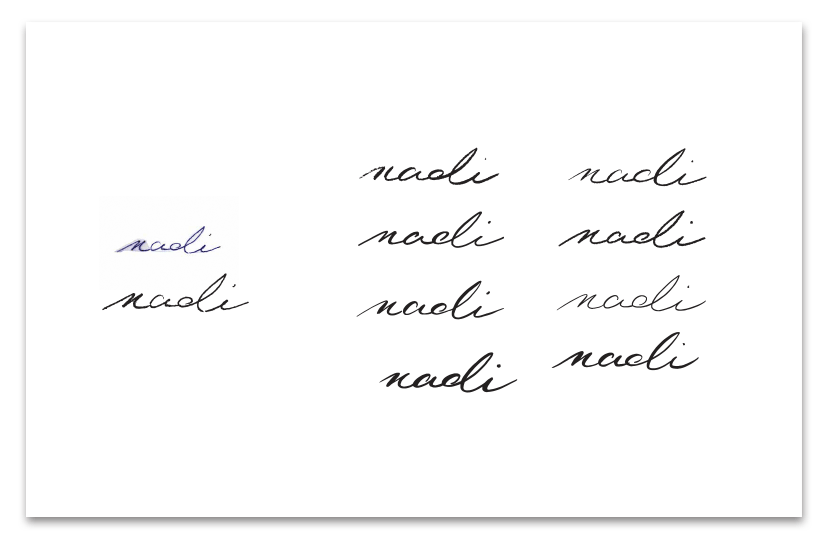 nadi
nadi
nadi
nadi
nadi
nadi
nadi
nadi
nadi
nadi